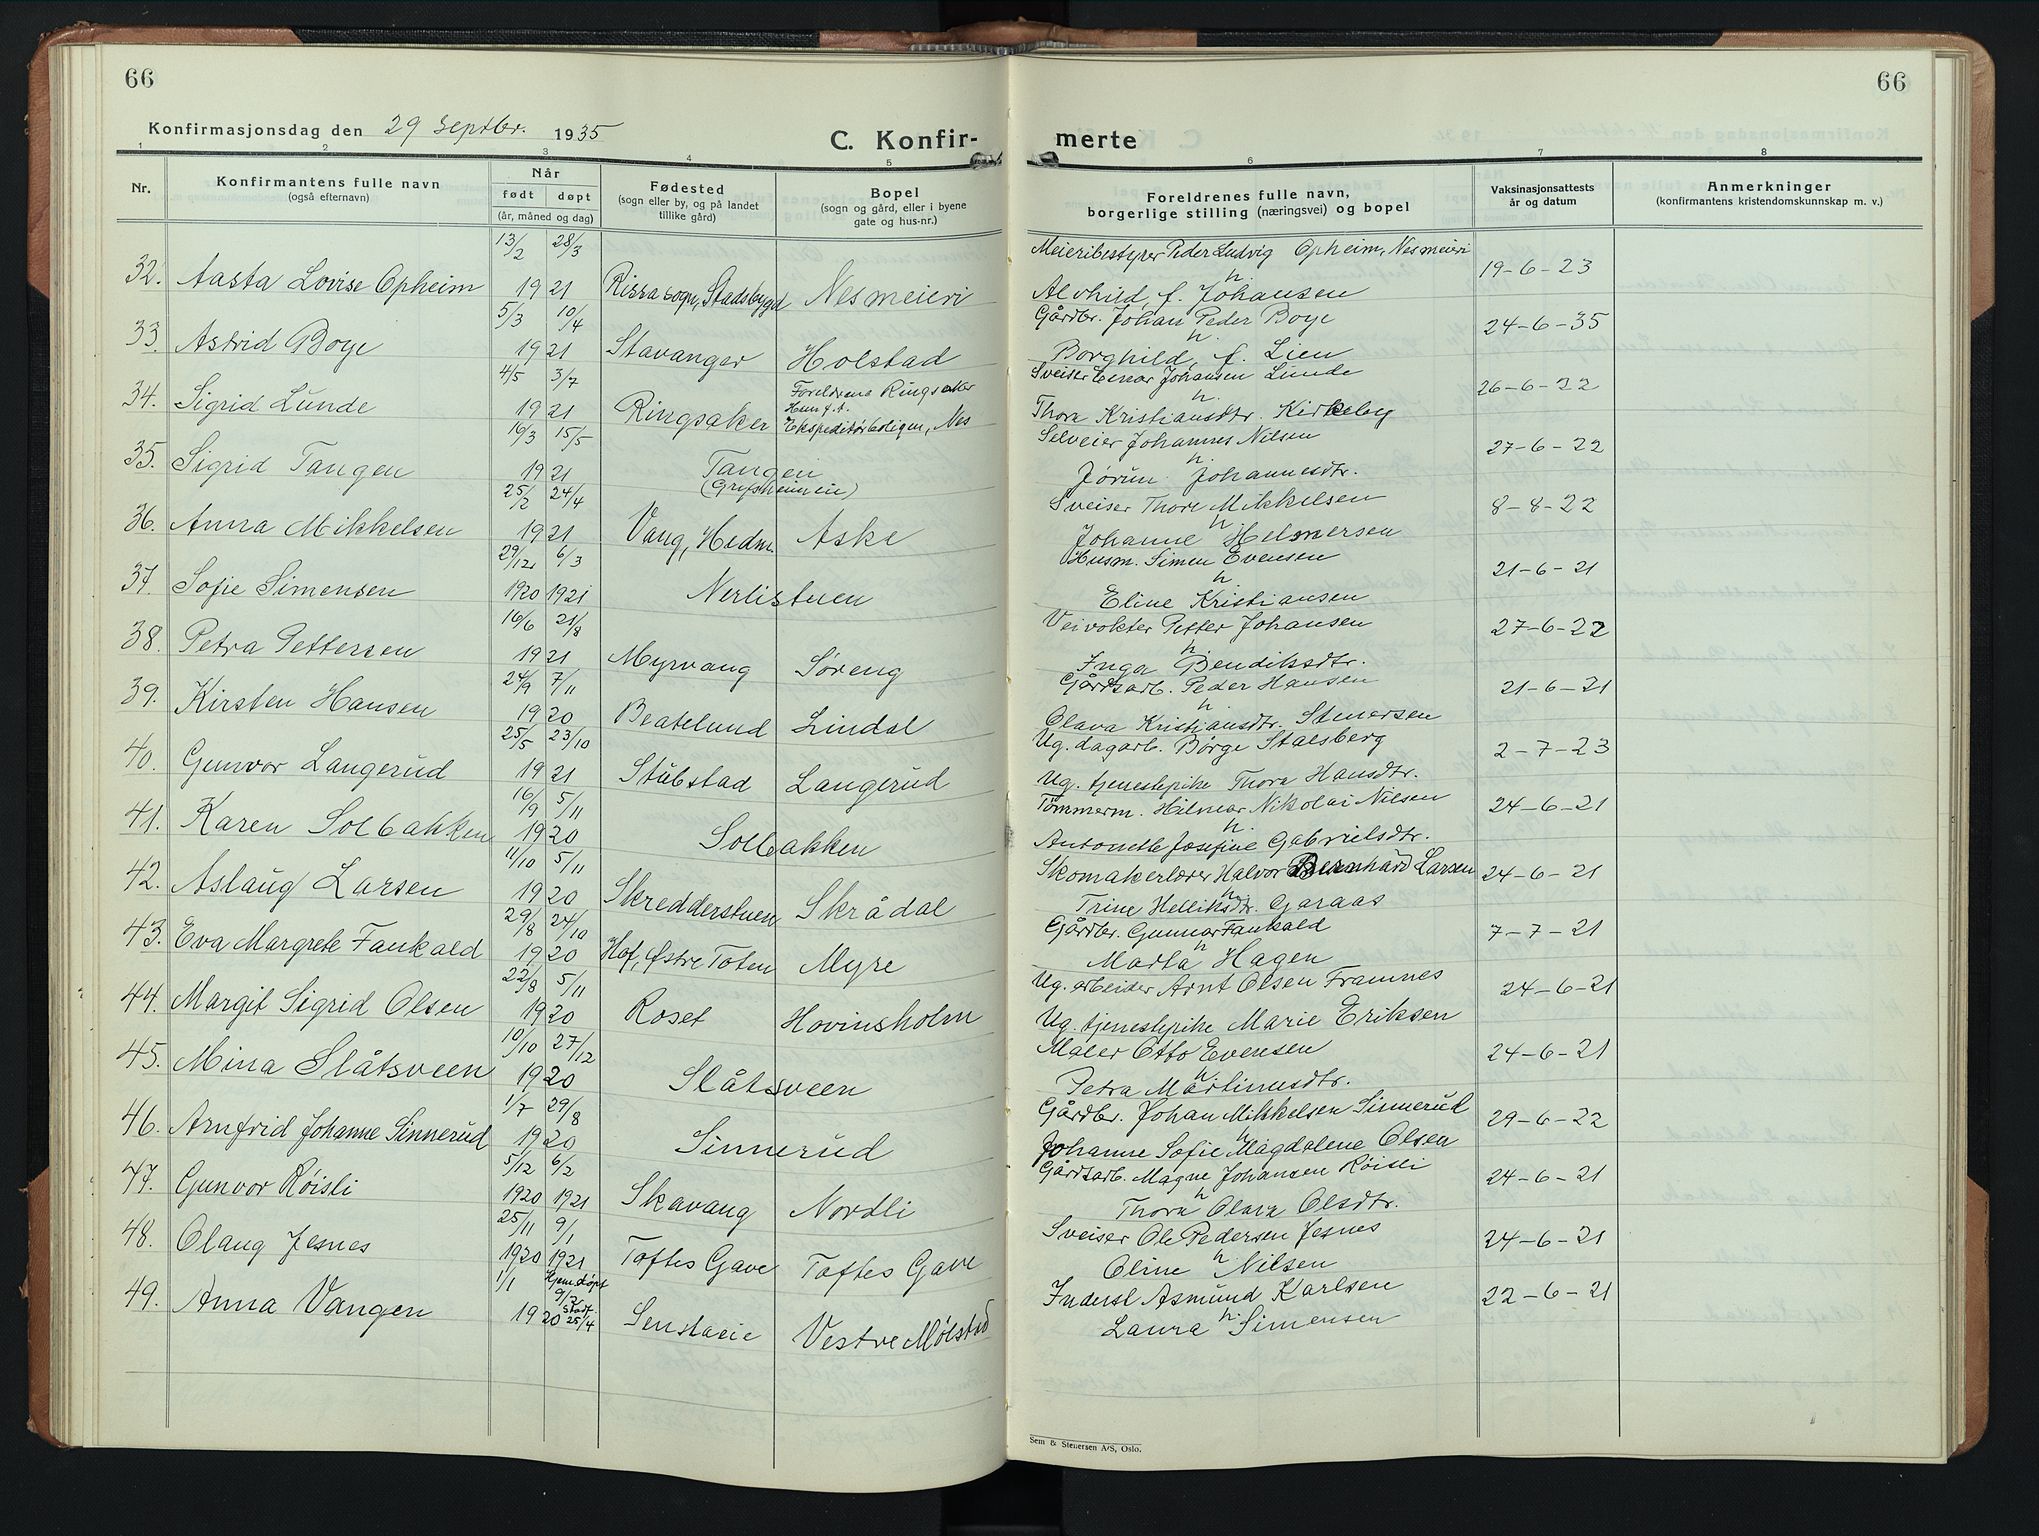 66
66
Konfirmasjonsdag den 29 Septbr. 1935
C. Konfir-
merte
1 2 3 4 5 6 7 8
Nr.
Konfirmantens fulle navn
(også efternavn)
Når
født døpt
(år, måned og dag)
Fødested
(sogn eller by, og på landet
tillike gård)
Bopel
(sogn og gård, eller i byene
gate og hus-nr.)
Foreldrenes fulle navn,
borgerlige stilling (næringsvei) og bopel
Vaksinasjonsattests
år og datum
Anmerkninger
(konfirmantens kristendomskunnskap m. v.)
13/2 28/3 Meieribestyrer Peder Ludvig Opheim, Nesmeieri
32. Aasta Lovise Opheim 1921 Rissa sogn, Stadsbygd Nesmeieri h. 19-6-23
Alvhild, f. Johansen
5/3 10/4 Gårdbr. Johan Peder Boye
33. Astrid Boye 1921 Stavanger Holstad h. 24-6-35
Borghild, f. Lien
4/5 3/7 Foreldrene Ringsaker Sveiser Einar Johansen Lunde
34. Sigrid Lunde 1921 Ringsaker Hun f.t. h. 26-6-22
Ekspeditørboligen, Nes Thora Kristiansdtr. Kirkeby
16/3 15/5 Selveier Johannes Nilsen
35. Sigrid Tangen 1921 Tangen h. 27-6-22
Jørun Johannesdtr.
25/2 24/4 Sveiser Thore Mikkelsen
36. Anna Mikkelsen 1921 Vang, Hedm. Aske h 8-8-22
Johanne Helmersen
29/12 6/3 Husm. Simen Evensen
37. Sofie Simensen 1920 1921 Nerlistuen h 21-6-21
Eline Kristiansen
16/6 21/8 Veivokter Petter Johansen
38. Petra Pettersen 1921 Myrvang Søreng h. 27-6-22
Inga Bendiksdtr.
24/9 7/11 Gårdsarb. Peder Hansen
39. Kirsten Hansen 1920 Beatelund Lindal h. 21-6-21
Olava Kristiansdtr. Stenersen
25/5 23/10 Ug. dagarb. Børge Stalsberg
40. Gunvor Langerud 1921 Stubstad Langerud 2-7-23
Ug. tjenestepike Thora Hansdtr.
16/9 5/11 Tømmerm. Hilmar Nikolai Nilsen
41. Karen Solbakken 1920 Solbakken h. 24-6-21
Antonette Josefine Gabrielsdtr.
11/10 5/11 Skomakerlærer Halvor Bernhard Larsen
42. Aslaug Larsen 1920 Skredderstuen Skrådal h 24-6-21
Trine Helliksdtr. Garaas
29/8 24/10 Gårdbr. Gunnar Faukald
43. Eva Margrete Faukald 1920 Hof, Østre Toten Myre h 7-7-21
Marta Hagen
22/8 5/11 Ug. arbeider Arnt Olsen Framnes
44. Margit Sigrid Olsen 1920 Roset Hovinsholm 24-6-21
Ug. tjenestepike Marie Eriksen
10/10 27/12 Maler Otto Evensen
45. Mina Slåtsveen 1920 Slåtsveen h 24-6-21
Petra Martinusdtr.
1/7 29/8 Gårdbr. Johan Mikkelsen Sinnerud
46. Arnfrid Johanne Sinnerud 1920 Sinnerud h 29-6-22
Johanne Sofie Magdalene Olsen
5/12 6/2 Gårdsarb. Magne Johansen Røisli
47. Gunvor Røisli 1920 1921 Skavang Nordli h 24-6-21
Thora Olava Olsdtr.
25/11 9/1 Sveiser Ole Pedersen Jesnes
48. Olaug Jesnes 1920 1921 Toftes Gave Toftes Gave h 24-6-21
Oline Nilsen
1/1 Hjem.døpt 9/2 Inderst Asmund Karlsen
49. Anna Vangen 1920 stadf. 25/4 Vestre Mølstad h. 22-6-21
Laura Simensen
Sem & Stenersen A/S, Oslo.